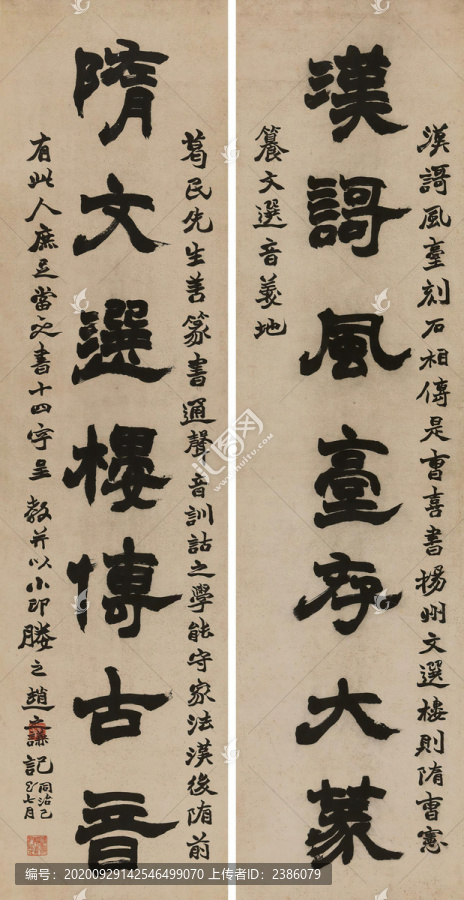 漢謌風臺刻石相傳是曹喜書揚州文選樓則隋曹憲
漢謌風臺存大篆
篹文選音義地
葛民先生善篆書通聲音訓詁之學能守家法漢後隋前
隋文選樓傳古音
有此人庶足當書十四字呈教并以小印媵之趙之謙記
同治己
巳七月
汇图网
www.huitu.com
编号:20200929142546499070 上传者ID:2386079